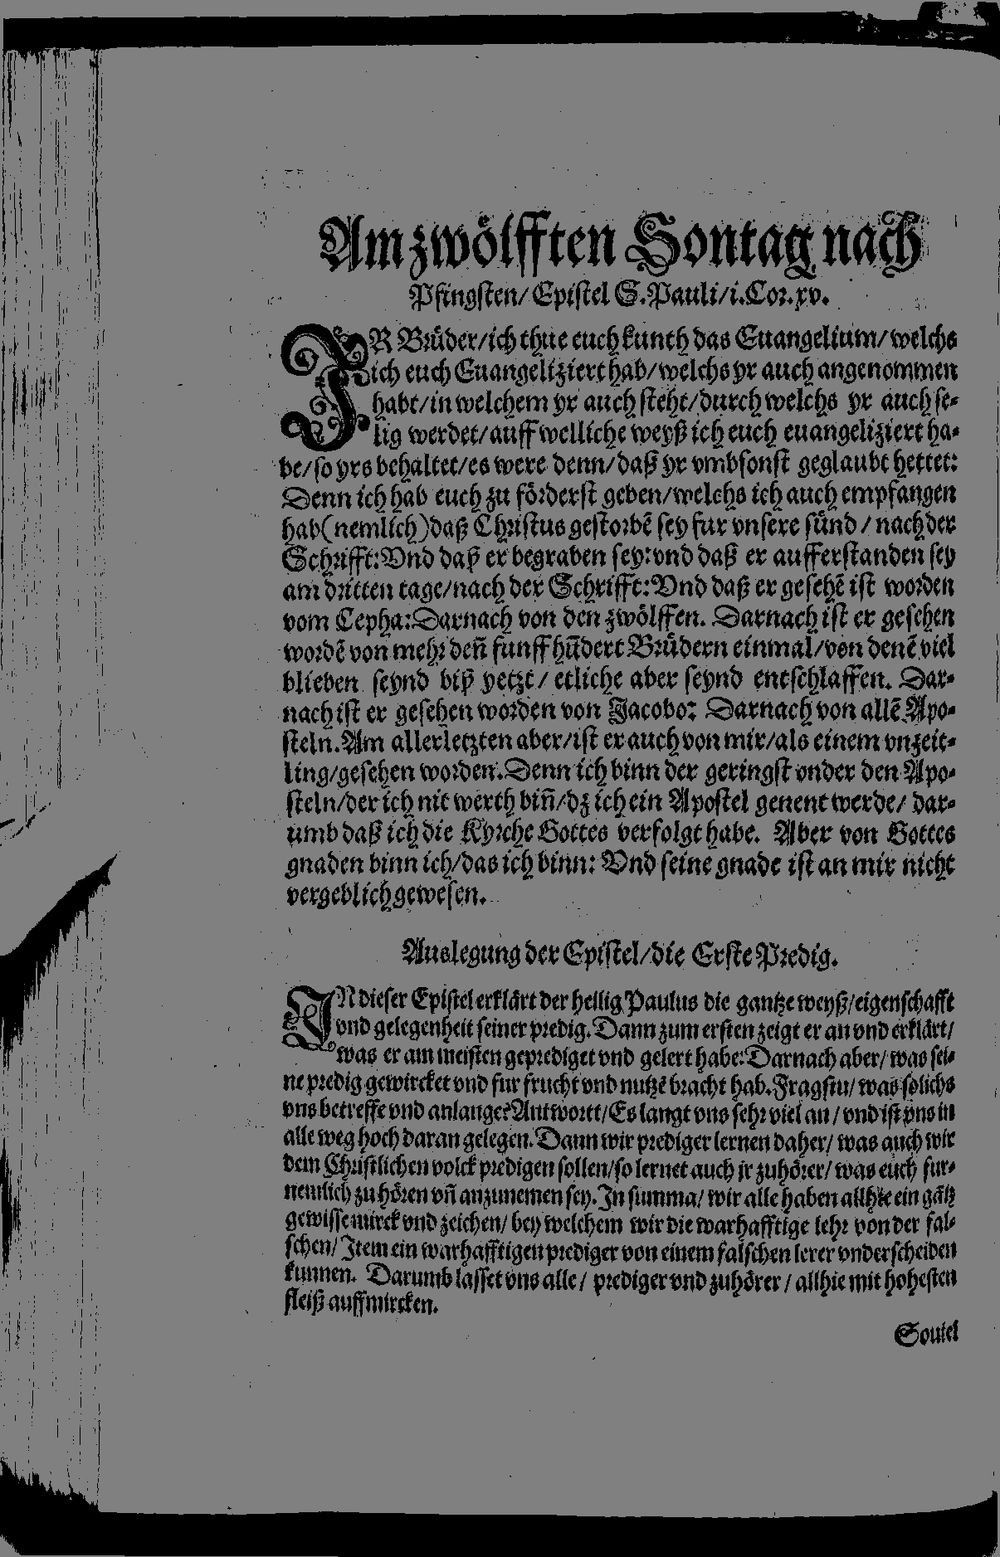 Am zwölfften Sontag nach
Pfingsten/ Epistel S. Pauli/ i. Cor. xv.
IR Brüder/ich thue euch kunth das Euangelium/ welchs
ich euch Euangeliziert hab/ welchs yr auch angenommen
habt/ in welchem yr auch steht/durch welchs yr auch se-
lig werdet/ auff welliche weyß ich euch euangeliziert ha-
be/ so yrs behaltet/ es were denn/ daß yr vmbsonst geglaubt hettet:
Denn ich hab euch zu förderst geben/welchs ich auch empfangen
hab (nemlich) daß Christus gestorbē sey fur vnsere sünd / nach der
Schrifft: Vnd daß er begraben sey: vnd daß er aufferstanden sey
am dritten tage/nach der Schrifft: Vnd daß er gesehē ist worden
vom Cepha: Darnach von den zwölffen. Darnach ist er gesehen
wordē von mehr deñ funff hūdert Brüdern einmal/von denē viel
blieben seynd biß yetzt/ etliche aber seynd entschlaffen. Dar-
nach ist er gesehen worden von Jacobo: Darnach von allē Apo-
steln. Am allerletzten aber/ist er auch von mir/als einem vnzeit-
ling/gesehen worden. Denn ich binn der geringst vnder den Apo-
steln/der ich nit werth biñ/dz ich ein Apostel genent werde/ dar-
umb daß ich die Kyrche Gottes verfolgt habe. Aber von Gottes
gnaden binn ich/das ich binn: Vnd seine gnade ist an mir nicht
vergeblich gewesen.
Auslegung der Epistel/die Erste Predig.
IN dieser Epistel erklärt der heilig Paulus die gantze weyß/eigenschafft
vnd gelegenheit seiner predig. Dann zum ersten zeigt er an vnd erklärt/
was er am meisten geprediget vnd gelert habe: Darnach aber/ was sei-
ne predig gewircket vnd fur frucht vnd nutzē bracht hab. Fragstu/ was solichs
vns betreffe vnd anlange? Antwortt/ Es langt vns sehr viel an / vnd ist vns in
alle weg hoch daran gelegen. Dann wir prediger lernen daher/ was auch wir
dem Christlichen volck predigen sollen/so lernet auch jr zuhörer/ was euch fur-
nemlich zu hören vñ anzunemen sey. In summa/ wir alle haben allhie ein gātz
gewisse mirck vnd zeichen/ bey welchem wir die warhafftige lehr von der fal-
schen/ Item ein warhafftigen prediger von einem falschen lerer vnderscheiden
kunnen. Darumb lasset vns alle/ prediger vnd zuhörer / allhie mit hohesten
fleiß auffmircken.
Souiel